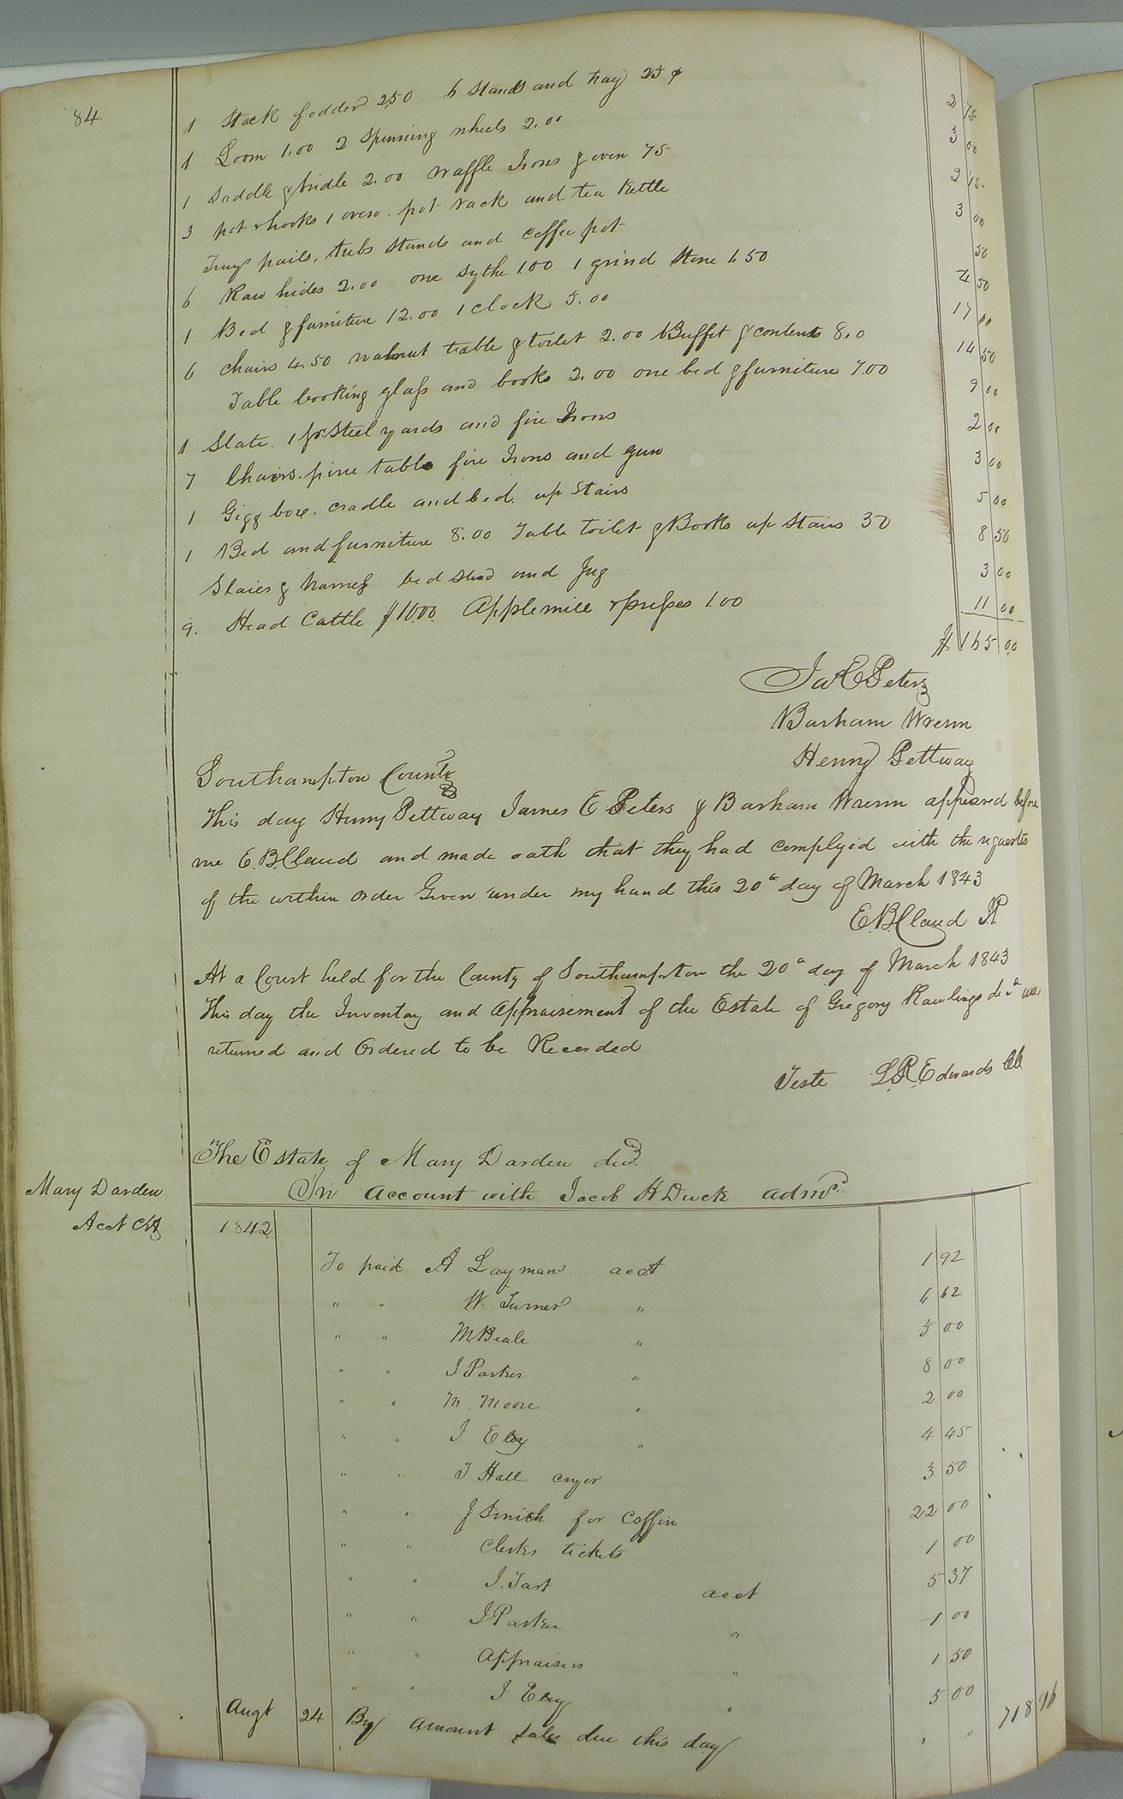 84
1 Stack fodder 2.50 6 Stands and tray 25 ¢ 2 75
1 Loom 1.00 2 Spinning wheels 2.00 3 00
1 Saddle & bridle 2.00 waffle Irons & oven 75 2 75
3 pot hooks 1 oven. pot rack and tea kettle 3 00
Trays pails, tubs Stands and Coffee pot 50
6 Raw hides 2.00 one Sythe 1.00 1 grind Stone 1.50 4 50
1 Bed & furniture 12.00 1 clock 5.00 17 00
6 chairs 4.50 walnut table & toilet 2.00 1 Buffet & contents 8.0 14 50
Table looking glass and books 2.00 one bed & furniture 7.00 9 00
1 Slate. 1 pr. Steel yards and fire Irons 2 00
7 Chairs. pine table fire Irons and gun 3 00
1 Gigg boxe. cradle and bed up Stairs 5 00
1 Bed and furniture 8.00 Table toilet & Books up Stairs 50 8 50
Slaies & harness bed stead and Jug 3 00
9. Head Cattle $10.00 Apple mill & presses 1.00 11 00
$ 165 00
Jas E Peters
Barham Wrenn
Henry Pettway
Southampton County
This day Henry Pettway James E Peters & Barham Wrenn appeared before
me E. B. Claud and made oath that they had complyid with the
of the within order Given under my hand this 20th day of March 1843
E. B. Claud J.P.
At a Court held for the County of Southampton the 20th day of March 1843
This day the Inventory and Appraisement of the Estate of Gregory Rawlings decd was
returned and Ordered to be Recorded
Teste L. R. Edwards Clk
The Estate of Mary Darden decd.
Mary Darden
In account with Jacob H Duck admr.
Acct
1842
To paid A Layman acct 1 92
" " W. Turner " 1 62
" " M Beale " 5 00
" " J Parker " 8 00
" " M. Moore " 2 00
" " J Eley " 4 45
" " J Hall cryer 3 50
" " J Smith for Coffin 22 00
" " Clerks tickets 1 00
" " J. Tart acct 5 37
" " J Parker " 1 00
" " Appraisers " 1 50
" " J Eley " 5 00
Augt 24 By amount sales due this day 718 96